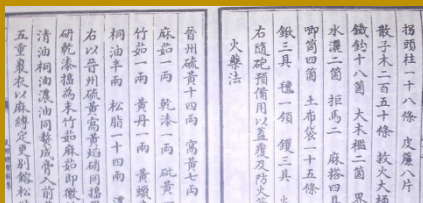 拐頭柱一十八條 皮簾八片
散子木二百五十條 救火大桶
鐵鈎十八箇 大木檻二箇 界
水濃二箇 拒馬二 麻搭四具
唧筒四箇 土布袋一十五條
鍬三具 氊一領 钁三具 火
右隨砲預備用以蓋覆及防火箭
火藥法
晉州硫黃十四兩 窩黃七兩
麻茹一兩 乾漆一兩 砒黃
竹茹一兩 黃丹一兩 黃蠟
桐油半兩 松脂一十四兩 濃
右以晉州硫黃窩黃焰硝同擣
研乾漆擣為末竹茹麻茹即微
清油桐油濃油同熬成膏入前
五重裹衣以麻縛定更別鎔松